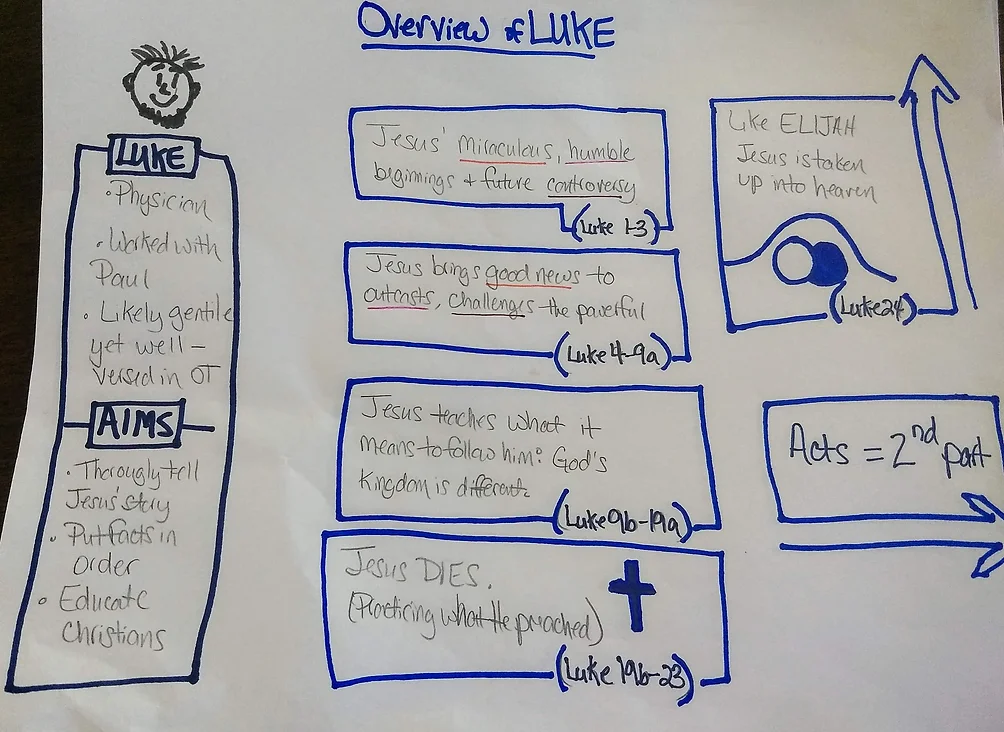 Overview of LUKE
LUKE
• Physician
• Worked with
Paul
• Likely gentile
yet well-
versed in OT
AIMS
• Thorougly tell
Jesus' story
• Put facts in
order
• Educate
Christians
Jesus' miraculous, humble
beginnings + future controversy
(Luke 1-3)
Jesus brings good news to
outcasts, challenges the powerful
(Luke 4-9a)
Jesus teaches what it
means to follow him: God's
Kingdom is different.
(Luke 9b-19a)
Jesus DIES.
(Practicing what He preached)
(Luke 19b-23)
Like ELIJAH
Jesus is taken
up into heaven
(Luke 24)
Acts = 2nd part